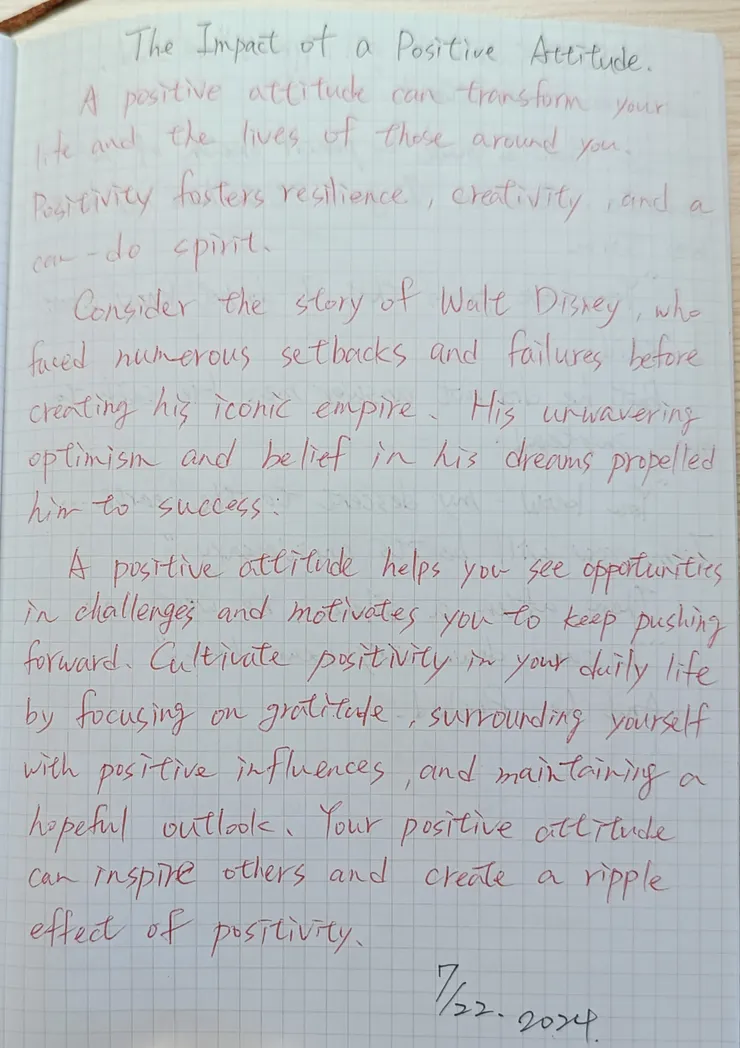 The Impact of a Positive Attitude.
A positive attitude can transform your
life and the lives of those around you.
Positivity fosters resilience, creativity, and a
can-do spirit.
Consider the story of Walt Disney, who
faced numerous setbacks and failures before
creating his iconic empire. His unwavering
optimism and belief in his dreams propelled
him to success.
A positive attitude helps you see opportunities
in challenges and motivates you to keep pushing
forward. Cultivate positivity in your daily life
by focusing on gratitude, surrounding yourself
with positive influences, and maintaining a
hopeful outlook. Your positive attitude
can inspire others and create a ripple
effect of positivity.
7/22. 2024.